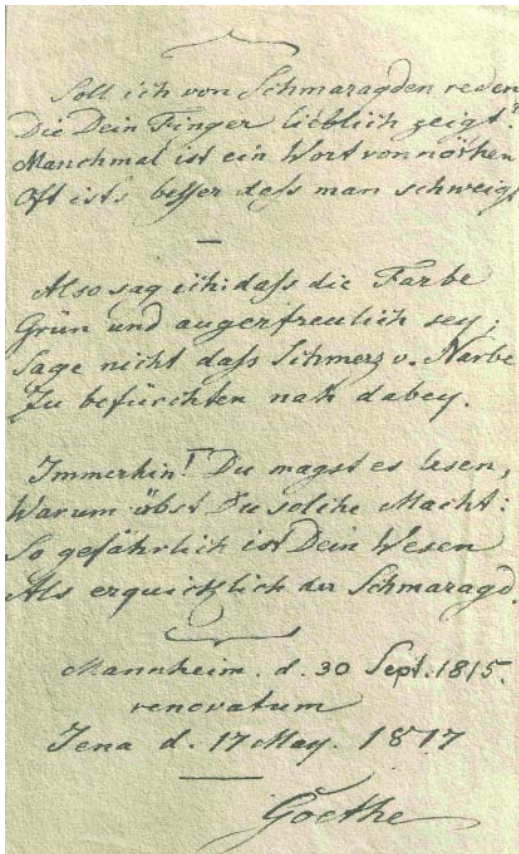 Soll ich von Schmaragden reden
Die Dein Finger lieblich zeigt?
Manchmal ist ein Wort vonnöthen
Oft ists besser dass man schweigt
Also sag ich: dass die Farbe
Grün und augerfreulich sey;
Sage nicht dass Schmerz u. Narbe
Zu befürchten nah dabey.
Immerhin! Du magst es lesen,
Warum übst Du solche Macht!
So gefährlich ist Dein Wesen
Als erquicklich der Schmaragd.
Mannheim. d. 30 Sept. 1815.
renovatum
Jena d. 17 May. 1817
Goethe